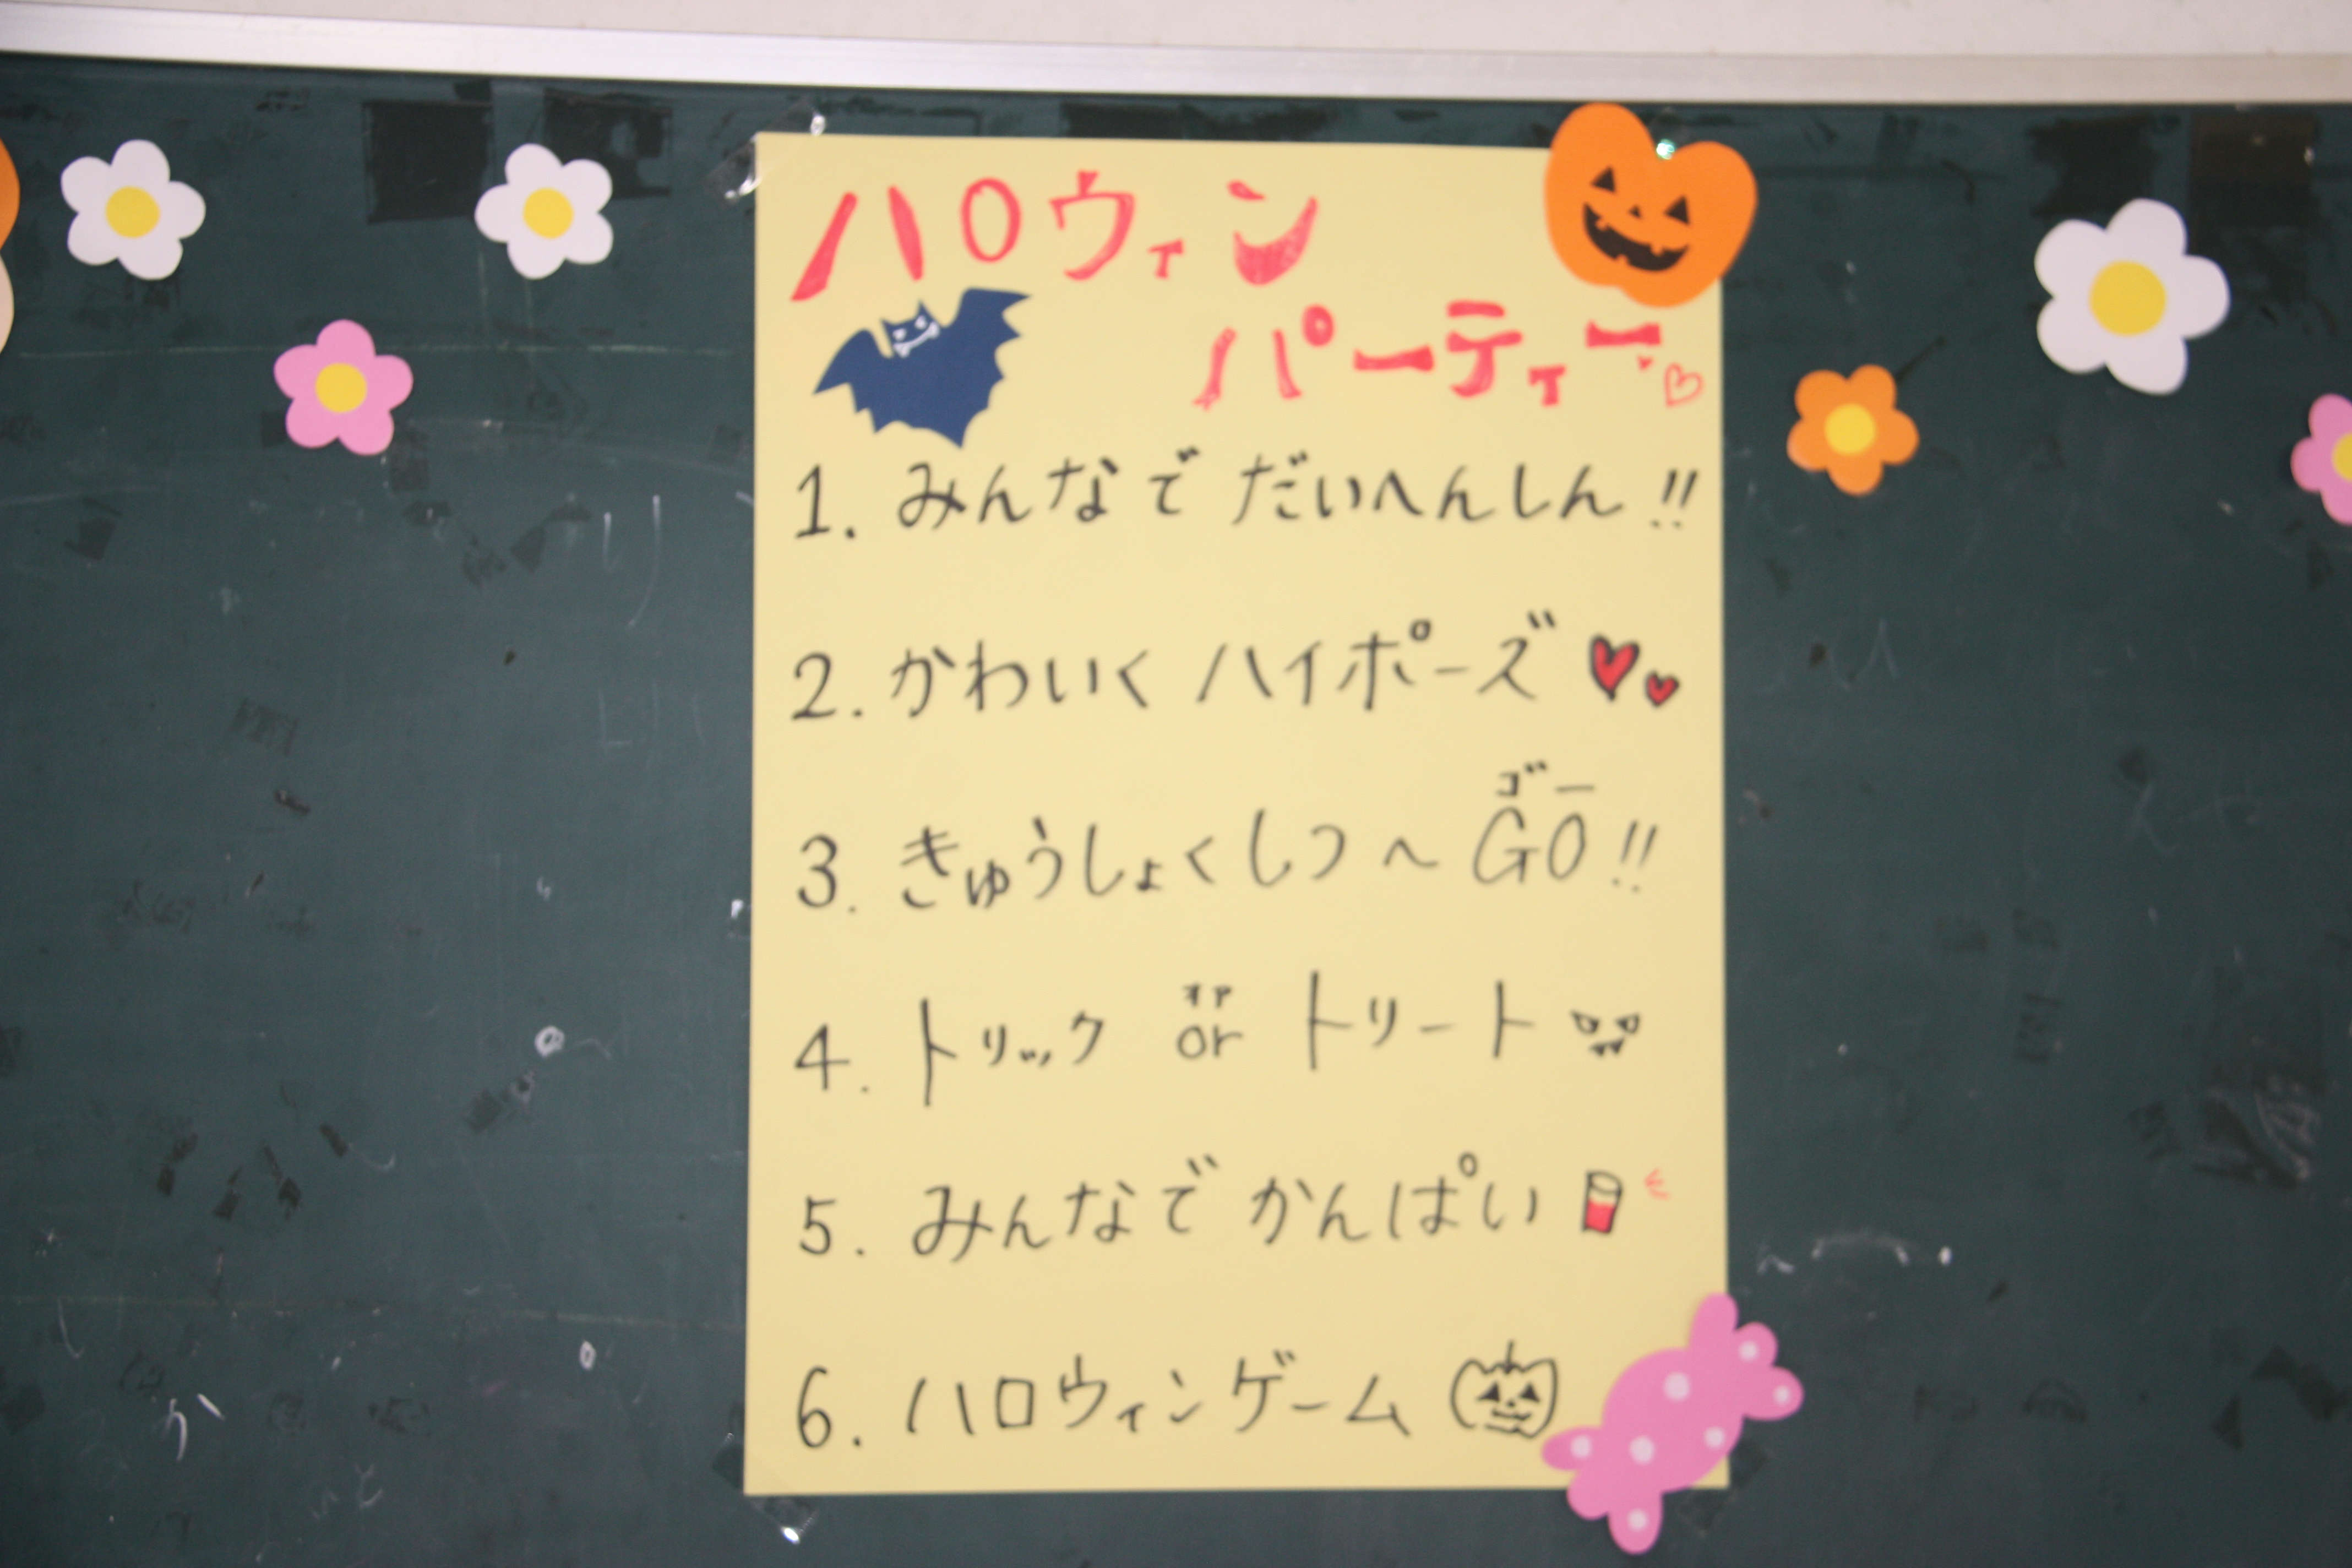 ハロウィン
パーティー♡
1. みんなで だいへんしん!!
2. かわいく ハイポーズ
ゴー
3. きゅうしょくしつへGO!!
オア
4. トリック or トリート
5. みんなで かんぱい
6. ハロウィンゲーム